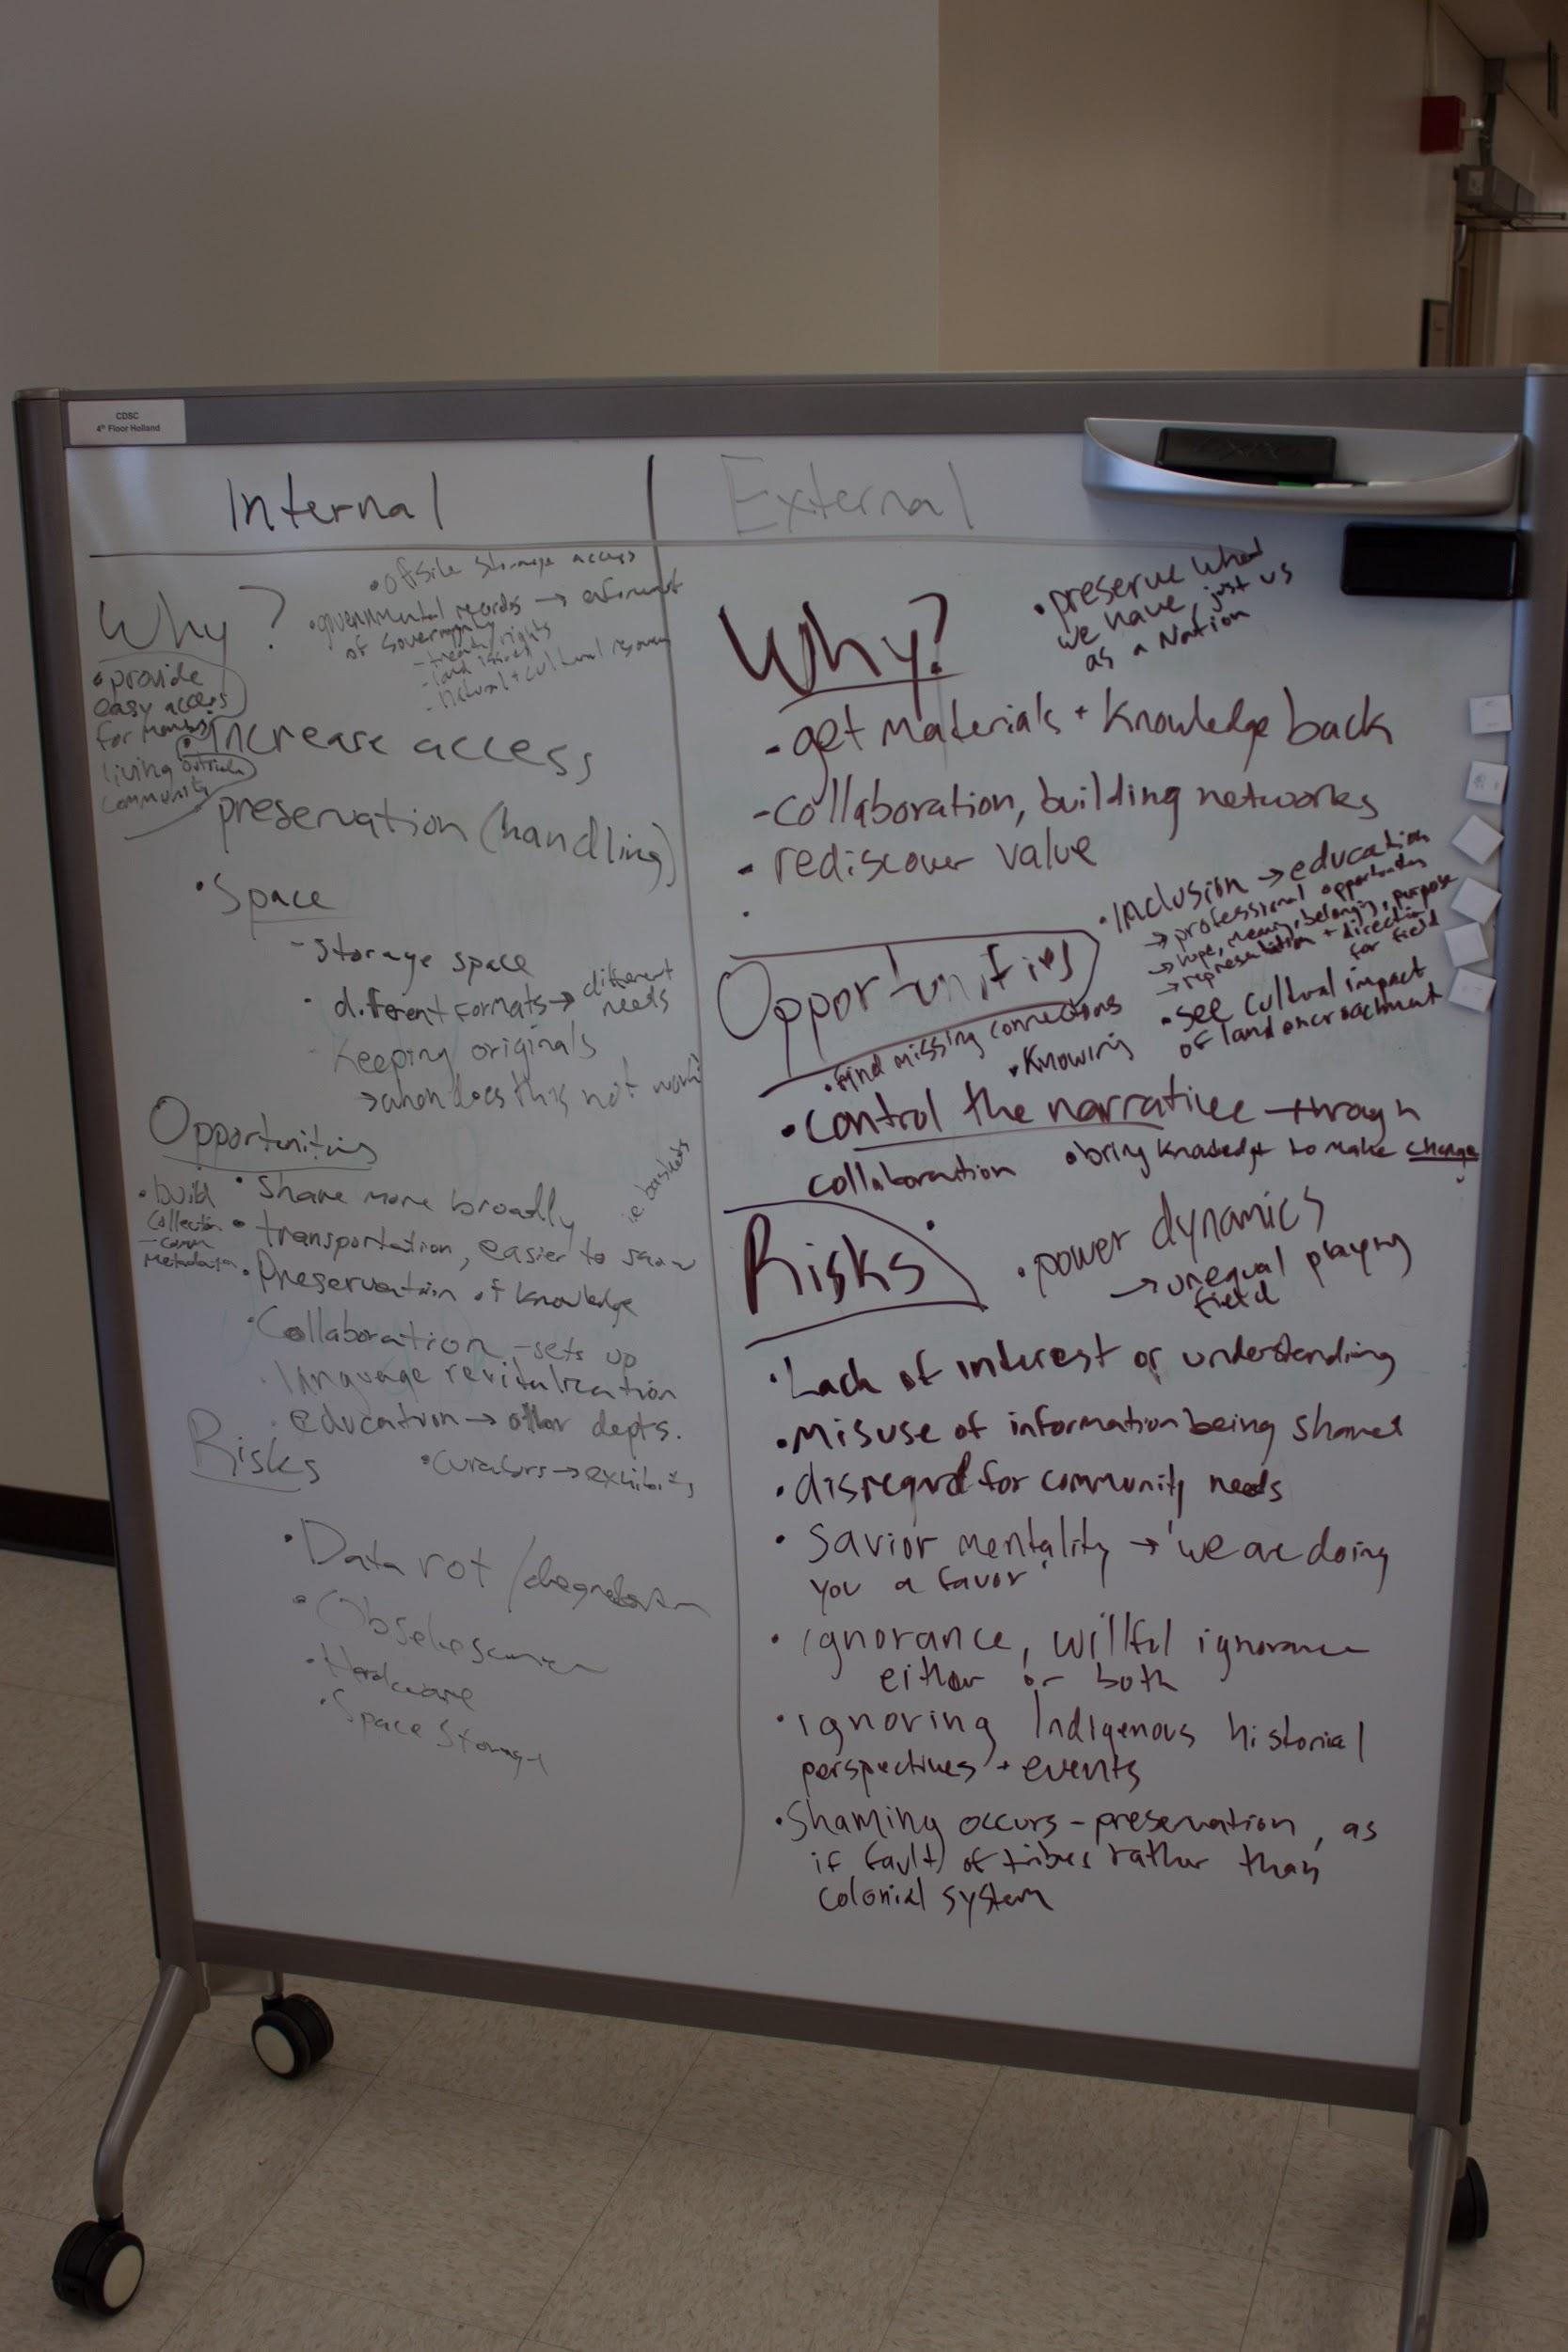 CDSC
4th Floor Holland
Internal
Why?
• offsite storage access
• governmental records → enforcement
of sovereignty
- treaty rights
- land issues
- natural + cultural resources
• provide
easy access
for members
living outside
community
• increase access
preservation (handling)
• Space
- storage space
• different formats → different
needs
- keeping originals
→ when does this not work?
i.e. baskets
Opportunities
• build
collection
- comm
Metadata
• Share more broadly
• transportation, easier to
• Preservation of knowledge
• Collaboration - sets up
• language revitalization
• education → other depts.
• curators → exhibits
Risks
• Data rot / degradation
• Obselescence
• Hardware
• Space Storage
External
Why?
• preserve what
we have, just us
as a Nation
- get materials + knowledge back
- collaboration, building networks
- rediscover value
Opportunities
• inclusion → education
→ professional opportunities
→ hope, meaning, belonging, purpose
→ representation + direction
for field
• find missing connections
• Knowing
• see cultural impact
of land encroachment
• control the narrative through
collaboration
• bring knowledge to make change
Risks
• power dynamics
→ unequal playing
field
• Lack of interest or understanding
• Misuse of information being shared
• disregard for community needs
• Savior mentality → 'we are doing
you a favor'
• ignorance, willful ignorance
either or both
• ignoring Indigenous historical
perspectives + events
• Shaming occurs - preservation, as
if fault of tribes rather than
colonial system